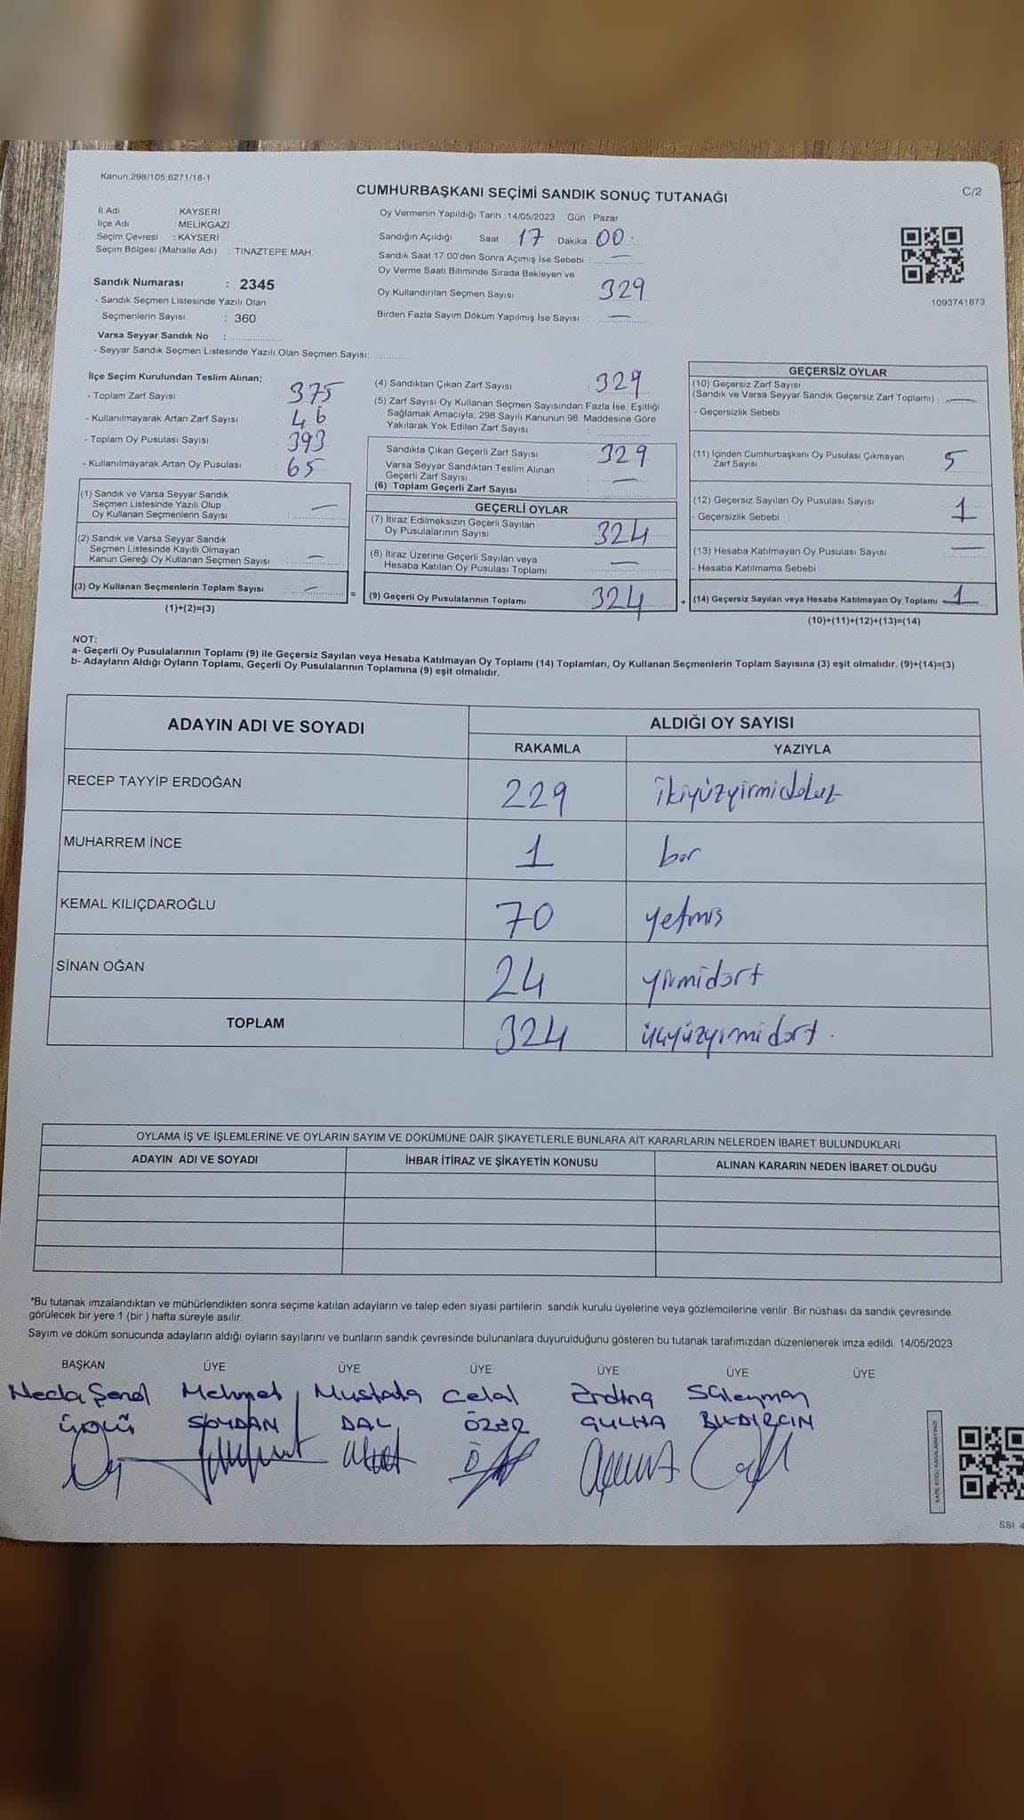 Kanun:298/105;6271/18-1
CUMHURBAŞKANI SEÇİMİ SANDIK SONUÇ TUTANAĞI
C/2
İl Adı : KAYSERİ
İlçe Adı : MELİKGAZİ
Seçim Çevresi : KAYSERİ
Seçim Bölgesi (Mahalle Adı) : TINAZTEPE MAH.
Sandık Numarası : 2345
- Sandık Seçmen Listesinde Yazılı Olan
Seçmenlerin Sayısı : 360
Varsa Seyyar Sandık No :
- Seyyar Sandık Seçmen Listesinde Yazılı Olan Seçmen Sayısı:
Oy Vermenin Yapıldığı Tarih 14/05/2023 Gün : Pazar
Sandığın Açıldığı Saat 17 Dakika 00
Sandık Saat 17:00'den Sonra Açımış İse Sebebi : —
Oy Verme Saati Bitiminde Sırada Bekleyen ve
Oy Kullandırılan Seçmen Sayısı 329
Birden Fazla Sayım Döküm Yapılmış İse Sayısı —
1093741873
İlçe Seçim Kurulundan Teslim Alınan;
- Toplam Zarf Sayısı 375
- Kullanılmayarak Artan Zarf Sayısı 46
- Toplam Oy Pusulası Sayısı 393
- Kullanılmayarak Artan Oy Pusulası 65
(1) Sandık ve Varsa Seyyar Sandık
Seçmen Listesinde Yazılı Olup
Oy Kullanan Seçmenlerin Sayısı —
(2) Sandık ve Varsa Seyyar Sandık
Seçmen Listesinde Kayıtlı Olmayan
Kanun Gereği Oy Kullanan Seçmen Sayısı —
(3) Oy Kullanan Seçmenlerin Toplam Sayısı —
(1)+(2)=(3)
(4) Sandıktan Çıkan Zarf Sayısı 329
(5) Zarf Sayısı Oy Kullanan Seçmen Sayısından Fazla İse, Eşitliği
Sağlamak Amacıyla; 298 Sayılı Kanunun 98. Maddesine Göre
Yakılarak Yok Edilen Zarf Sayısı
Sandıkta Çıkan Geçerli Zarf Sayısı 329
Varsa Seyyar Sandıktan Teslim Alınan
Geçerli Zarf Sayısı —
(6) Toplam Geçerli Zarf Sayısı
GEÇERLİ OYLAR
(7) İtiraz Edilmeksizin Geçerli Sayılan
Oy Pusulalarının Sayısı 324
(8) İtiraz Üzerine Geçerli Sayılan veya
Hesaba Katılan Oy Pusulası Toplamı —
= (9) Geçerli Oy Pusulalarının Toplamı 324 +
GEÇERSİZ OYLAR
(10) Geçersiz Zarf Sayısı
(Sandık ve Varsa Seyyar Sandık Geçersiz Zarf Toplamı) : —
- Geçersizlik Sebebi
(11) İçinden Cumhurbaşkanı Oy Pusulası Çıkmayan
Zarf Sayısı 5
(12) Geçersiz Sayılan Oy Pusulası Sayısı 1
- Geçersizlik Sebebi
(13) Hesaba Katılmayan Oy Pusulası Sayısı —
- Hesaba Katılmama Sebebi
(14) Geçersiz Sayılan veya Hesaba Katılmayan Oy Toplamı 1
(10)+(11)+(12)+(13)=(14)
NOT:
a- Geçerli Oy Pusulalarının Toplamı (9) ile Geçersiz Sayılan veya Hesaba Katılmayan Oy Toplamı (14) Toplamları, Oy Kullanan Seçmenlerin Toplam Sayısına (3) eşit olmalıdır. (9)+(14)=(3)
b- Adayların Aldığı Oyların Toplamı, Geçerli Oy Pusulalarının Toplamına (9) eşit olmalıdır.
ADAYIN ADI VE SOYADI ALDIĞI OY SAYISI
RAKAMLA YAZIYLA
RECEP TAYYİP ERDOĞAN 229 ikiyüzyirmidokuz
MUHARREM İNCE 1 bir
KEMAL KILIÇDAROĞLU 70 yetmiş
SİNAN OĞAN 24 yirmidört
TOPLAM 324 üçyüzyirmidört.
OYLAMA İŞ VE İŞLEMLERİNE VE OYLARIN SAYIM VE DÖKÜMÜNE DAİR ŞİKAYETLERLE BUNLARA AİT KARARLARIN NELERDEN İBARET BULUNDUKLARI
ADAYIN ADI VE SOYADI İHBAR İTİRAZ VE ŞİKAYETİN KONUSU ALINAN KARARIN NEDEN İBARET OLDUĞU
*Bu tutanak imzalandıktan ve mühürlendikten sonra seçime katılan adayların ve talep eden siyasi partilerin sandık kurulu üyelerine veya gözlemcilerine verilir. Bir nüshası da sandık çevresinde
görülecek bir yere 1 (bir ) hafta süreyle asılır.
Sayım ve döküm sonucunda adayların aldığı oyların sayılarını ve bunların sandık çevresinde bulunanlara duyurulduğunu gösteren bu tutanak tarafımızdan düzenlenerek imza edildi. 14/05/2023
BAŞKAN ÜYE ÜYE ÜYE ÜYE ÜYE ÜYE
Necla Şenol Mehmet Mustafa Celal Erdinç Süleyman
SOYDAN DAL ÖZER BILDIRCIN